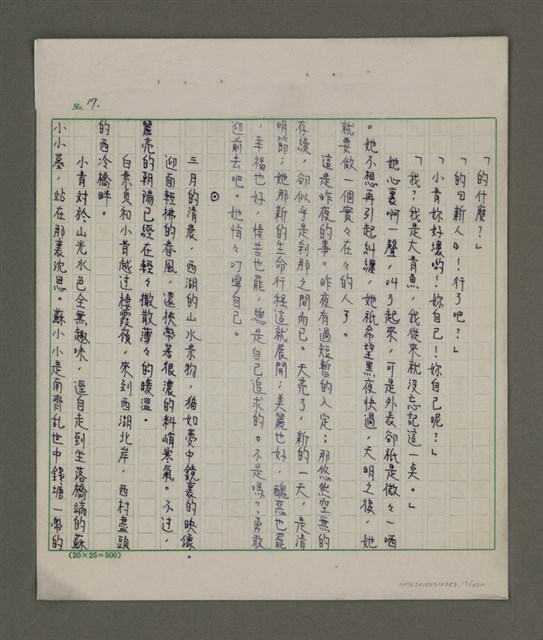 No. 17.
「的什麼？」
「的句新人々！行了吧？」
「小青妳好壞喲！妳自己！妳自己呢？」
「我？我是大青魚，我從來就沒忘記這一点。」
她心裏啊一聲，叫了起來，可是外表卻祇是微々一哂
。她不想再引起糾纏，她祇希望黑夜快過，天明之後，她
就要做一個實々在々的人了。
這是昨夜的事。昨夜有過短暫的入定；那悠然空無的
存續，卻似乎是刹那之間而已。天亮了，新的一天，是清
明節；她那新的生命行程這就展開；美麗也好，醜惡也罷
，幸福也好，悽苦也罷，總是自己追求的。不是嗎？勇敢
迎前去吧。她悄々叮嚀自己。
⊙
三月的清晨，西湖的山水景物，猶如夢中鏡裏的映像。
迎面輕拂的春風，還挾帶着很濃的料峭寒氣。不过，
麗亮的朝陽已經在輕々撒散薄々的暖溫。
白素貞和小青越过棲霞嶺，來到西湖北岸，西村盡頭
的西冷橋畔。
小青対於山光水色全無趣味，逕自走到坐落橋端的蘇
小小墓，站在那裏沈思。蘇小小是南齊乱世中錢塘一帶的
(20×25=500)